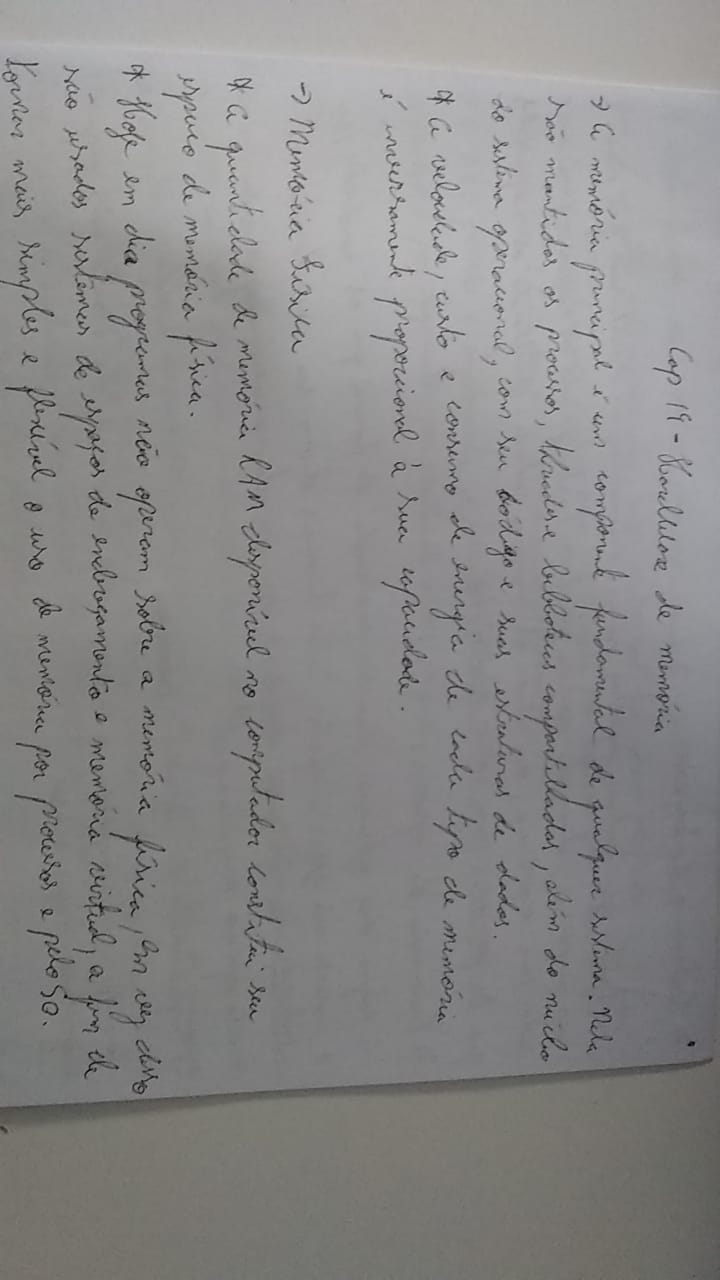 Cap 14 - Hardware de memória
→ A memória principal é um componente fundamental de qualquer sistema. Nela
são mantidos os processos, threads e bibliotecas compartilhadas, além do núcleo
do sistema operacional, com seu código e suas estruturas de dados.
* A velocidade, custo e consumo de energia de cada tipo de memória
é inversamente proporcional à sua capacidade.
→ Memória Física
* A quantidade de memória RAM disponível no computador constitui seu
espaço de memória física.
* Hoje em dia programas não operam sobre a memória física, em vez disso
são usados sistemas de espaços de endereçamento e memória virtual, a fim de
tornar mais simples e flexível o uso de memória por processos e pelo SO.